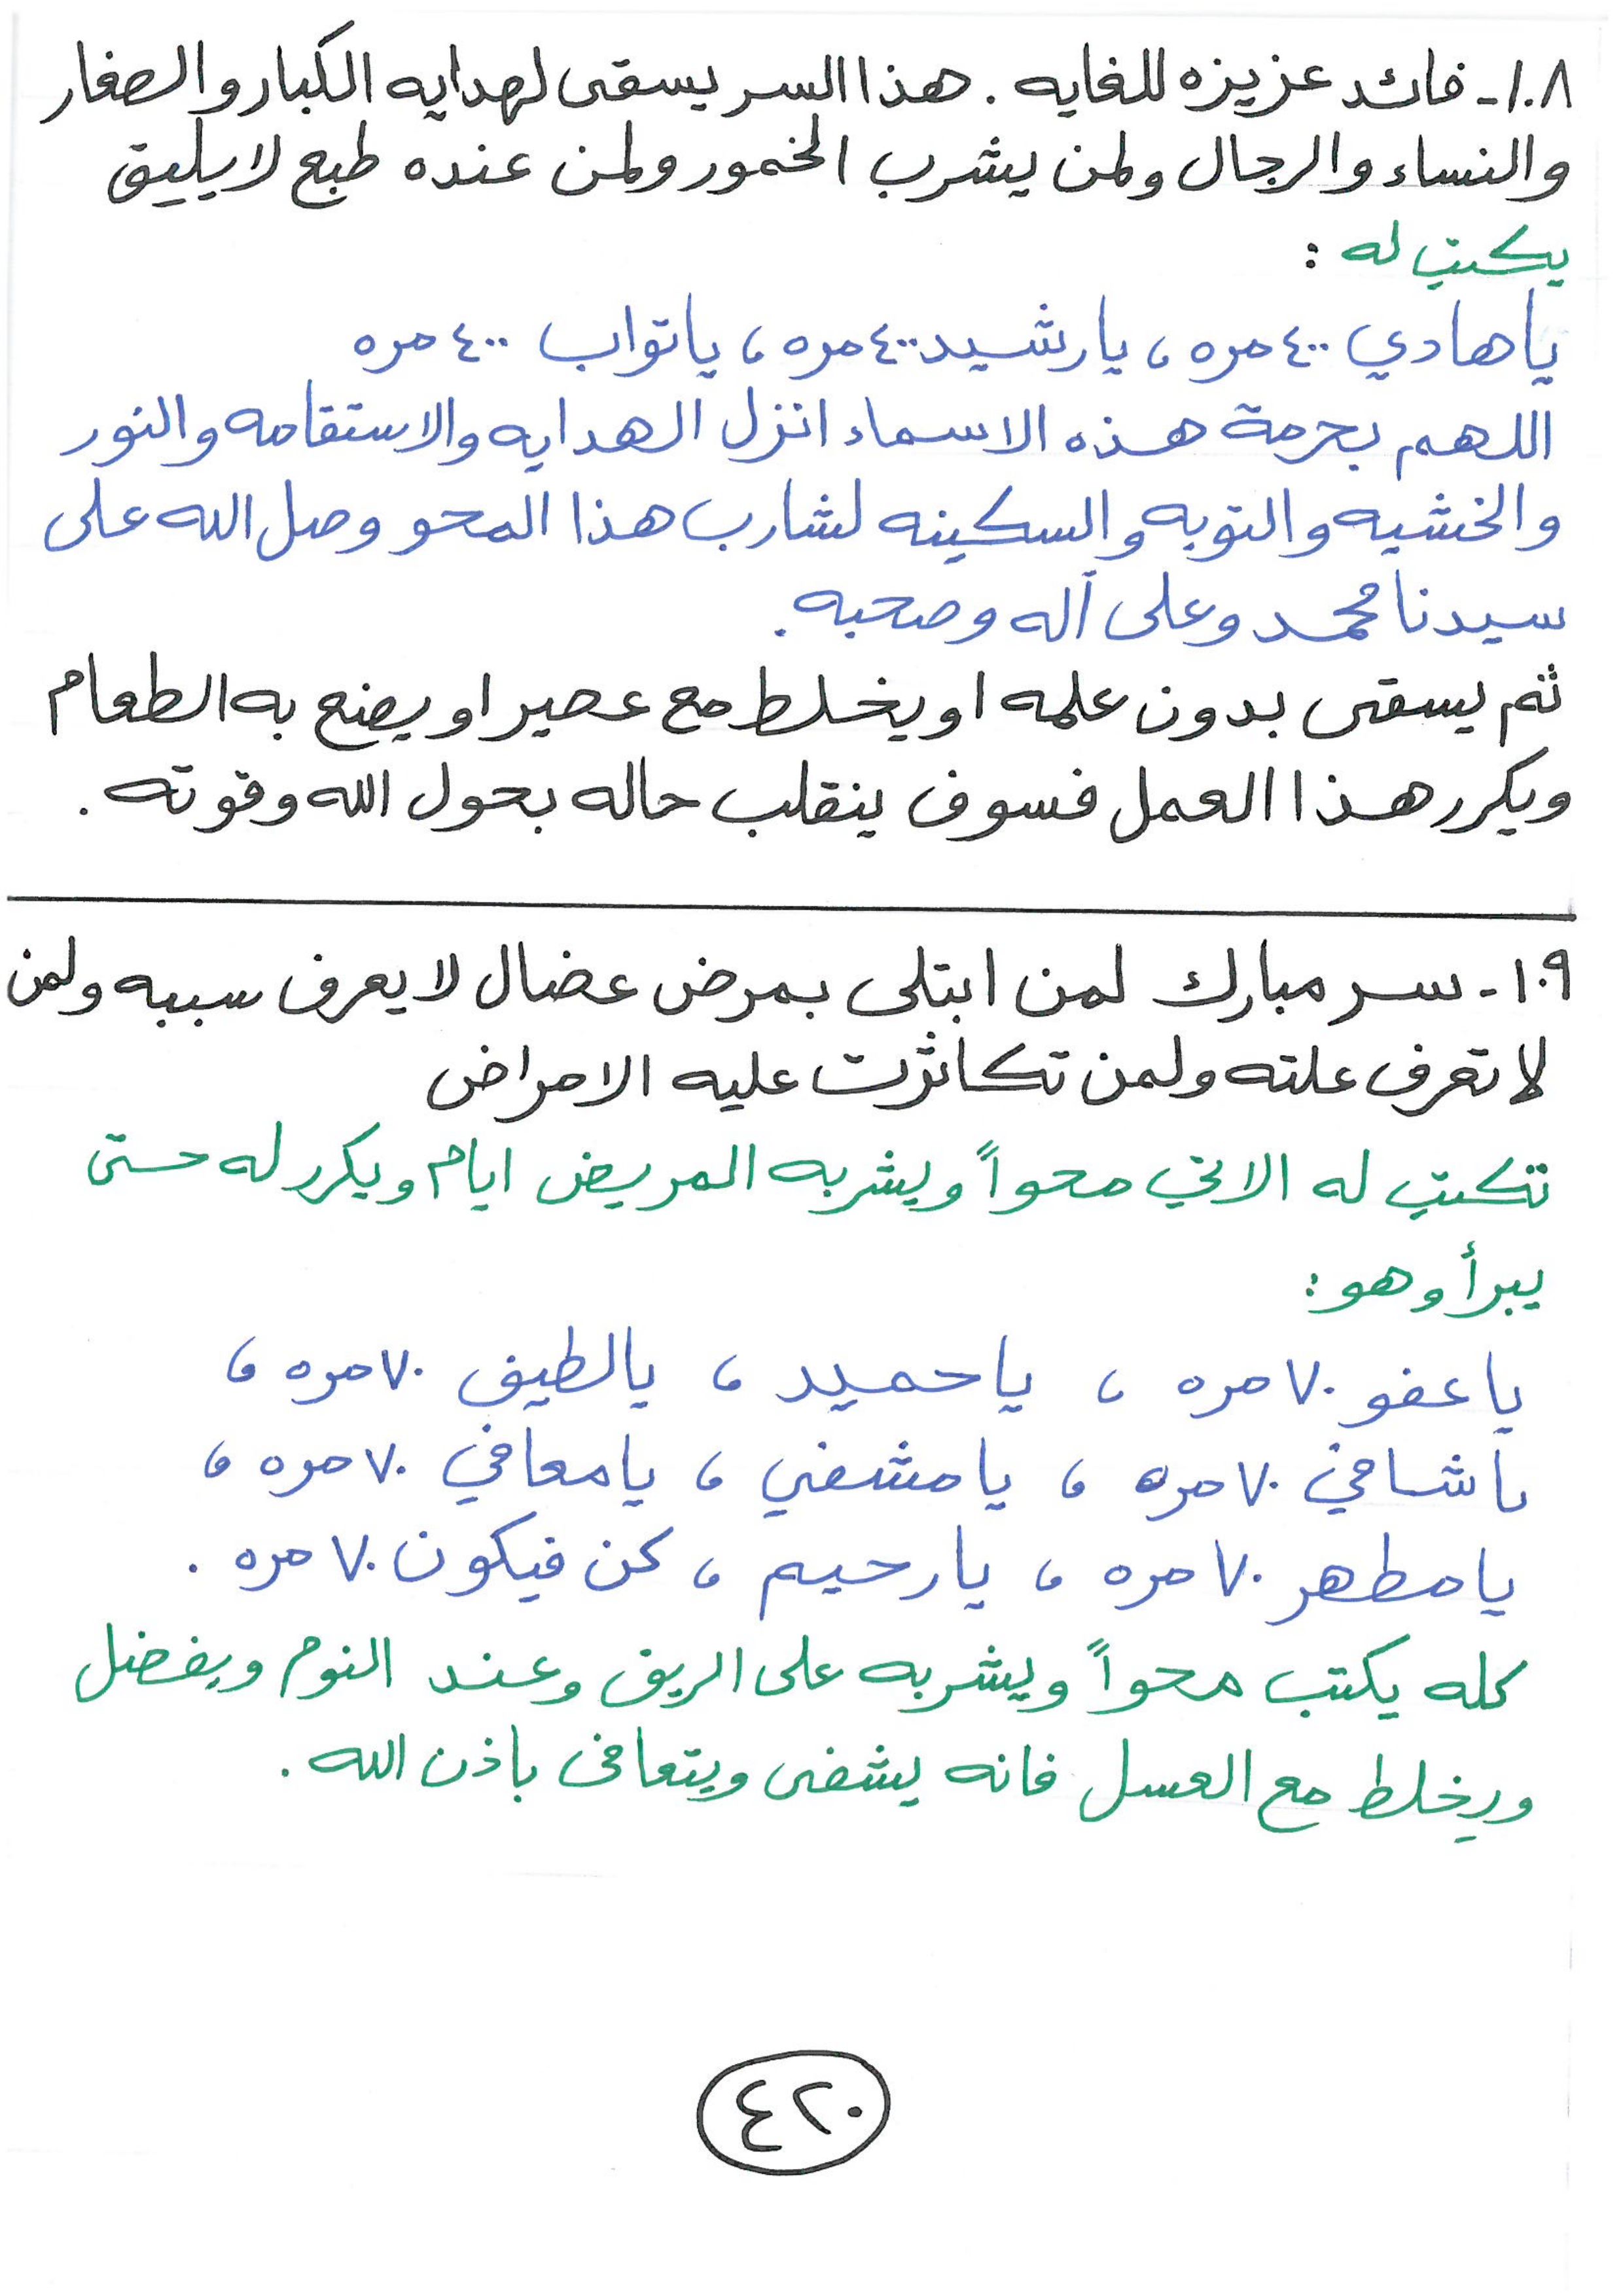 ١٠٨- فائد عزيزه للغايه . هذا السر يسقى لهدايه الكبار والصغار
والنساء والرجال ولمن يشرب الخمور ولمن عنده طبع لا يليق
يكتب له :
يا هادي ٤٠٠ مره ، يا رشيد ٤٠٠ مره ، يا تواب ٤٠٠ مره
اللهم بحرمة هذه الاسماء انزل الهدايه والاستقامه والنور
والخشيه والتوبه والسكينه لشارب هذا المحو وصل الله على
سيدنا محمد وعلى آله وصحبه .
ثم يسقى بدون علمه او يخلط مع عصير او يصنع به الطعام
ويكرر هذا العمل فسوف ينقلب حاله بحول الله وقوته .
١٠٩- سر مبارك لمن ابتلى بمرض عضال لا يعرف سببه ولمن
لا تعرف علته ولمن تكاثرت عليه الامراض
تكتب له الاتي محواً ويشربه المريض ايام ويكرر له حتى
يبرأ وهو :
يا عفو ٧٠ مره ، يا حميد ، يا لطيف ٧٠ مره ،
يا شافي ٧٠ مره ، يا مشفي ، يا معافي ٧٠ مره ،
يا مطهر ٧٠ مره ، يا رحيم ، كن فيكون ٧٠ مره .
كله يكتب محواً ويشربه على الريق وعند النوم ويفضل
ويخلط مع العسل فانه يشفى ويتعافى باذن الله .
٤٢٠